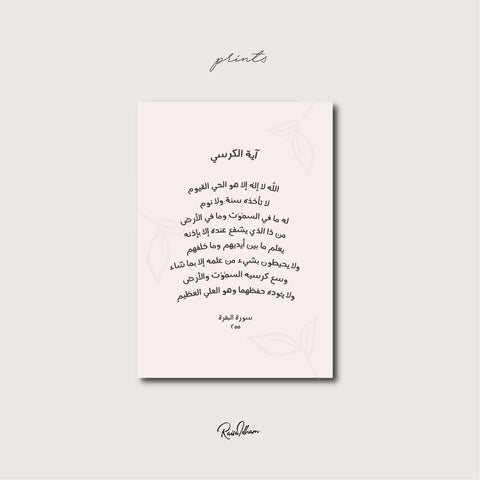 prints
آية الكرسي
الله لا إله إلا هو الحي القيوم
لا تأخذه سنة ولا نوم
له ما في السموٰت وما في الأرض
من ذا الذي يشفع عنده إلا بإذنه
يعلم ما بين أيديهم وما خلفهم
ولا يحيطون بشيء من علمه إلا بما شاء
وسع كرسيه السموٰت والأرض
ولا يئوده حفظهما وهو العلي العظيم
سورة البقرة
٢٥٥